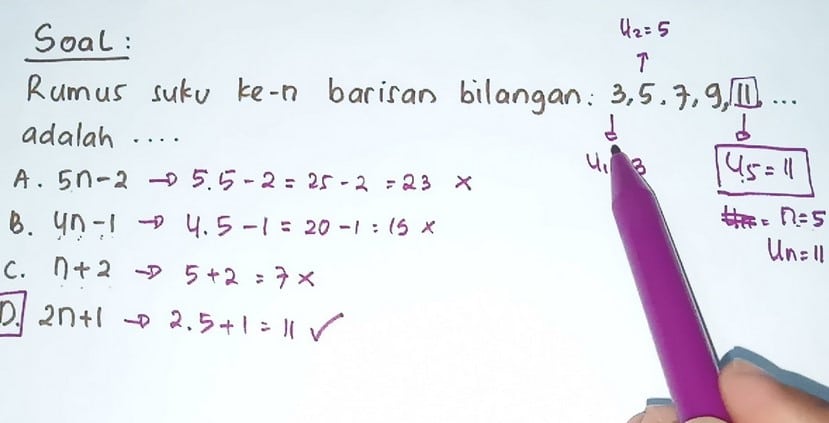 U2=5
↑
Soal:
Rumus suku ke-n barisan bilangan: 3, 5, 7, 9, 11, ...
adalah ....
A. 5n-2 → 5.5-2 = 25-2 = 23 ×
U5=11
B. 4n-1 → 4.5-1 = 20-1 = 19 ×
= n=5
Un=11
C. n+2 → 5+2 = 7 ×
D. 2n+1 → 2.5+1 = 11 ✓